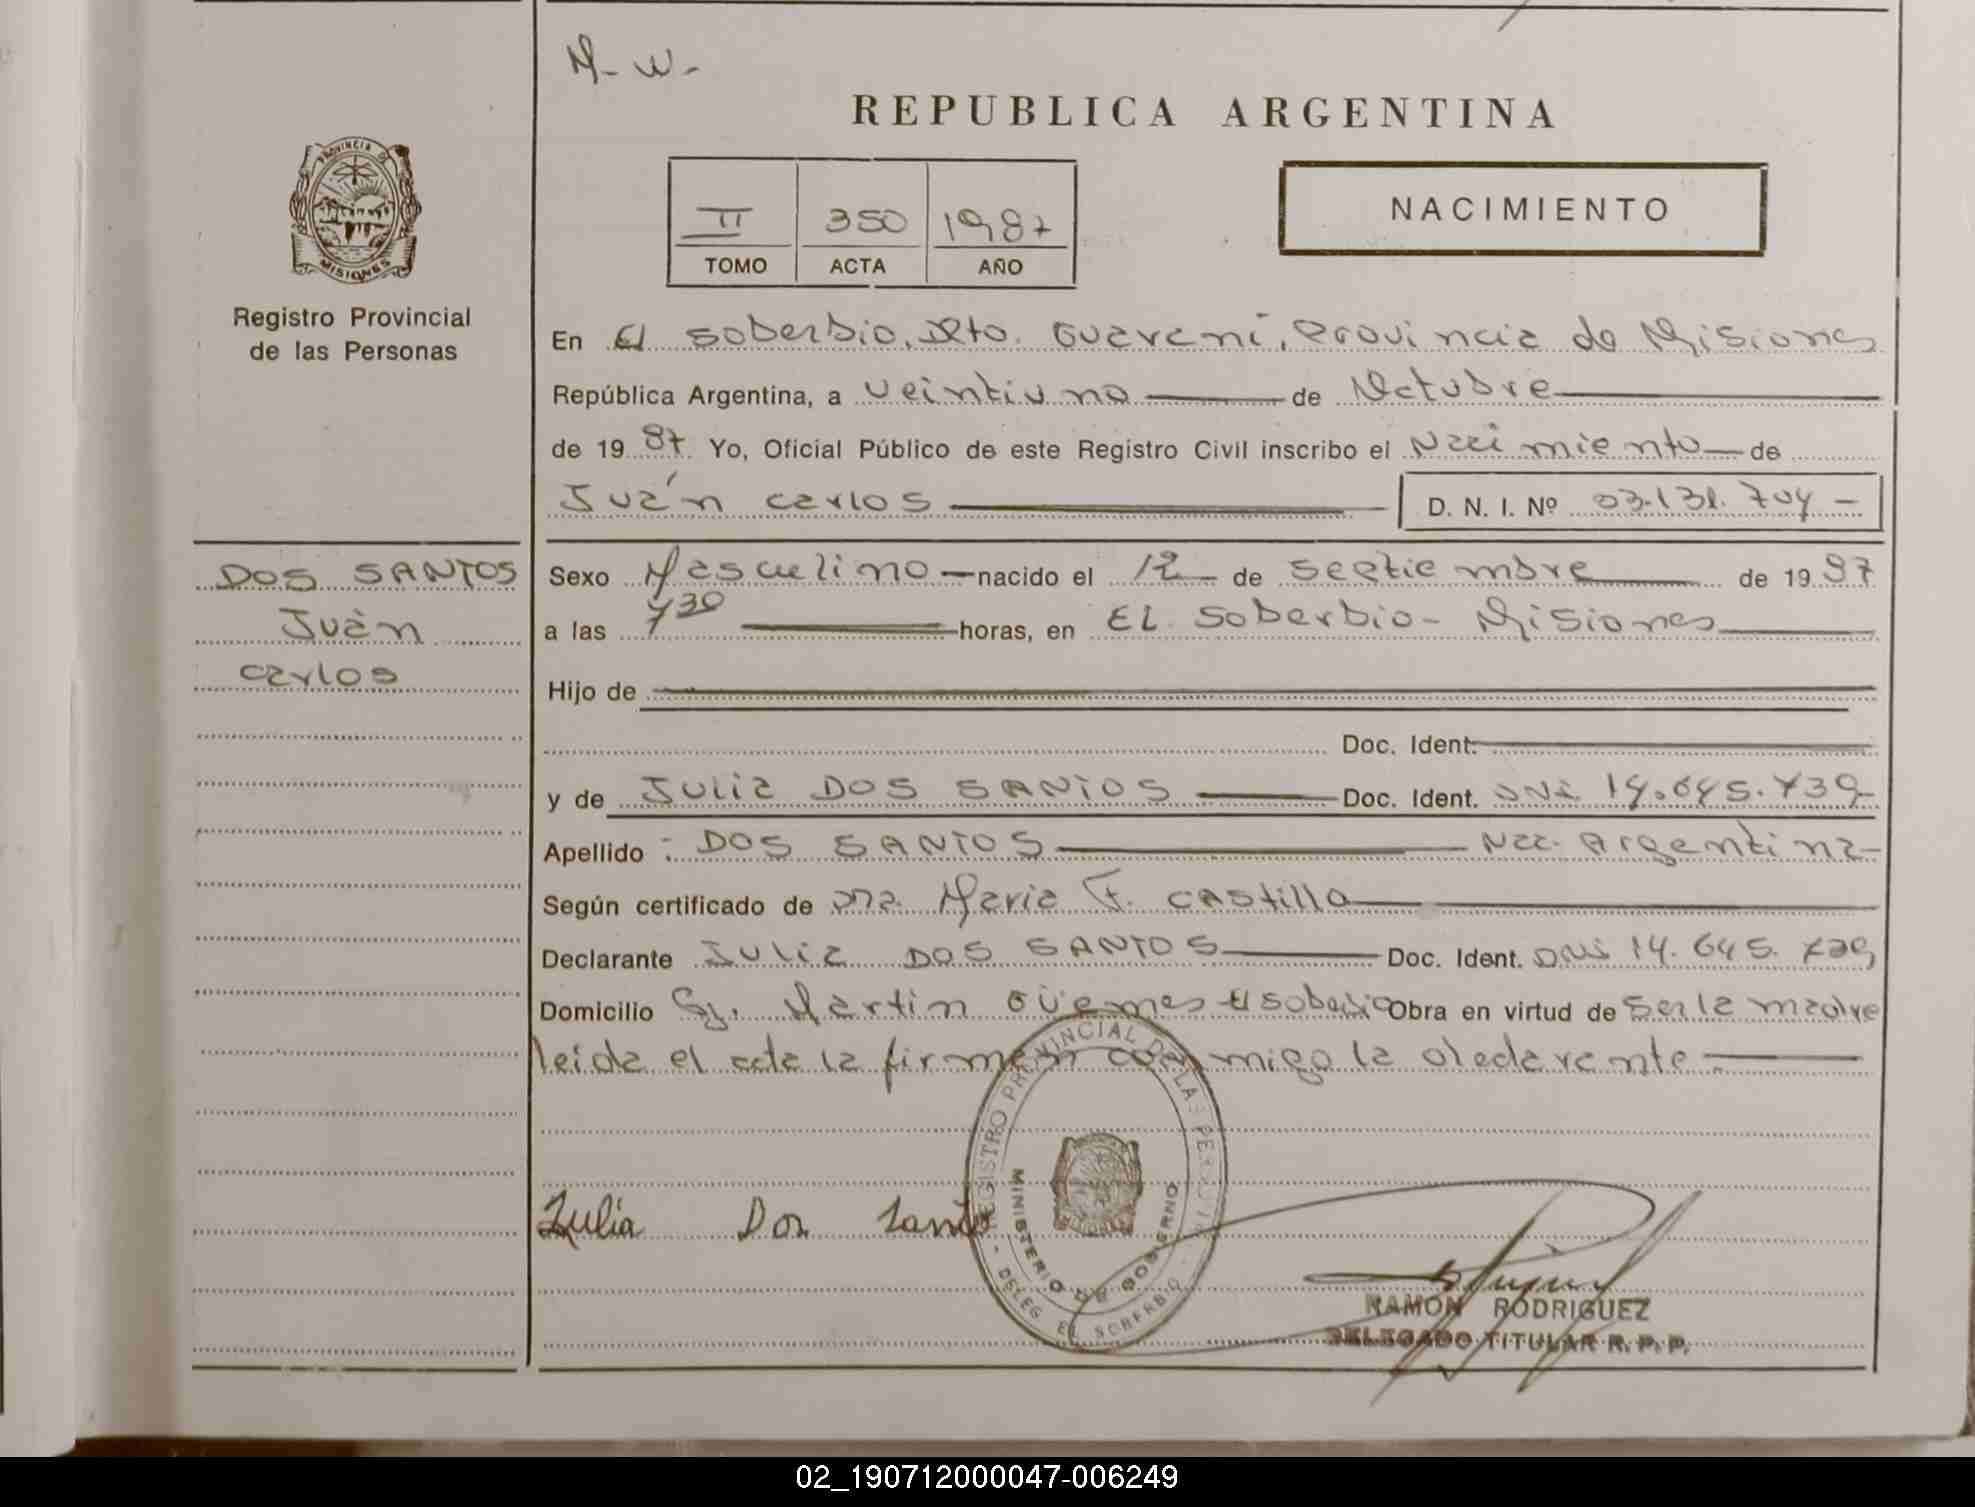 M- W-
REPUBLICA ARGENTINA
PROVINCIA DE
MISIONES
Registro Provincial
de las Personas
II 350 1987
TOMO ACTA AÑO
NACIMIENTO
En El Soberbio, Dto. Guaraní, Provincia de Misiones
República Argentina, a veintiuno de Octubre
de 1987 Yo, Oficial Público de este Registro Civil inscribo el Nacimiento de
Juán Carlos D. N. I. Nº
DOS SANTOS
Juàn
Carlos
Sexo Masculino nacido el 12 de Septiembre de 19
a las 730 horas, en EL Soberbio - Misiones
Hijo de
Doc. Ident.
y de Julia DOS SANTOS Doc. Ident. DNi 14.645.739
Apellido : DOS SANTOS Nac. Argentina
Según certificado de Dra. Maria F. Castillo
Declarante Julia DOS SANTOS Doc. Ident. DNi 14.645.739
Domicilio Gj. Martin Güemes El Soberbio Obra en virtud de Ser la madre
leida el acta la firman conmigo la declarante
REGISTRO PROVINCIAL DE LAS PERSONAS - DELEG EL SOBERBIO -
MINISTERIO DE GOBIERNO
Julia Dos Santo
RAMON RODRIGUEZ
DELEGADO TITULAR R. P. P.
02_190712000047-006249